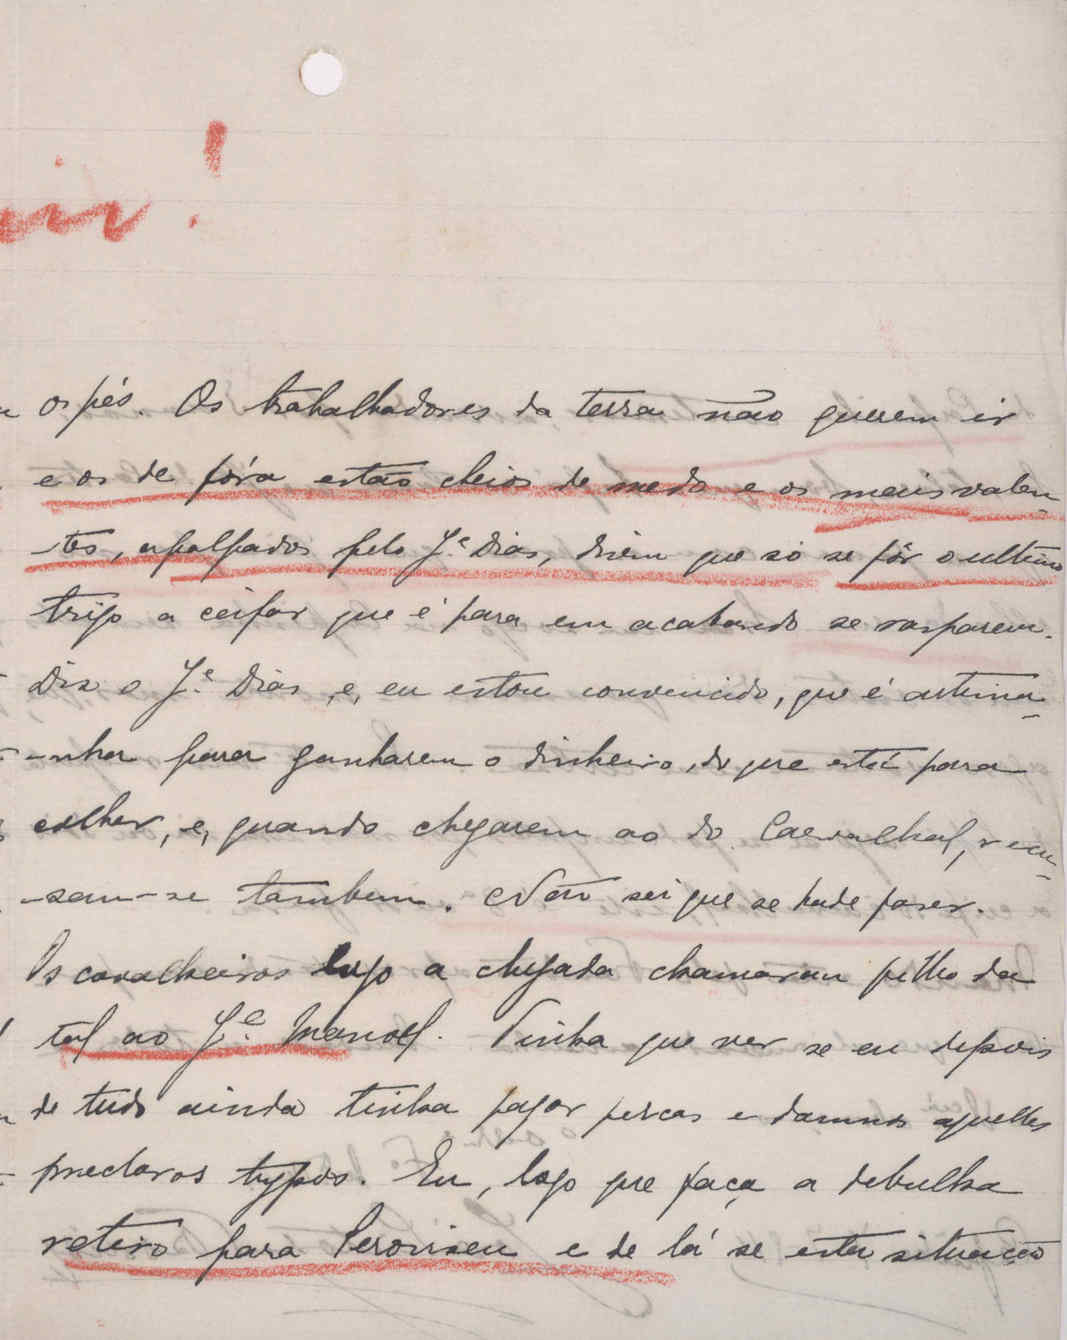 os pés. Os trabalhadores da terra não querem ir
e os de fóra estão cheios de medo e os mais valen
-tes, apalpados pelo J.e Dias, dizem que só se fôr o ultimo
trigo a ceifar que é para em acabando se rasparem.
Diz o J.e Dias, e, eu estou convencido, que é artima-
-nha para ganharem o dinheiro, do que está para
colher, e, quando chegarem ao do Carvalhal, recu-
-sam-se tambem. Não sei que se hade fazer.
Os cavalheiros logo a chegada chamaram filho da
tal ao J.e Manoel. Tinha que ver se eu depois
de tudo ainda tinha pagar percas e damnos aquelles
preclaros typos. Eu, logo que faça a debulha
retiro para e de lá se esta situação